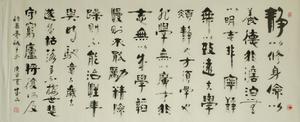 静以修身儉以
養德非澹泊無
以明志非寧靜
無以致遠夫學
須靜也才須學
也非學無以廣才非
志無以成學
慢則不能勵精險
躁則不能治性年
與時馳意與
遂成枯落多不接世悲
守窮廬將復何及